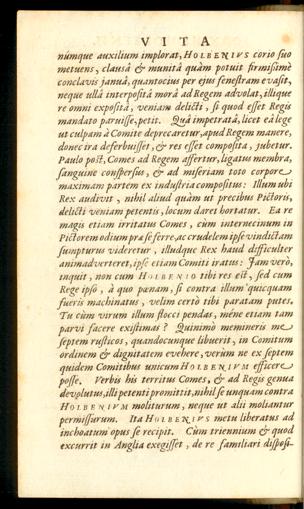 VITA
númque auxilium implorat, HOLBENIVS corio suo
metuens, clausâ & munitâ quàm potuit firmissimè
conclavis januâ, quantocius per ejus fenestram evasit,
neque ullâ interpositâ morâ ad Regem advolat, illique
re omni expositâ, veniam delicti, si quod esset Regis
mandato paruisse, petit. Quâ impetratâ, licet eâ lege
ut culpam à Comite deprecaretur, apud Regem manere,
donec ira deferbuisset, & res esset composita, jubetur.
Paulo pòst, Comes ad Regem affertur, ligatus membra,
sanguine conspersus, & ad miseriam toto corpore
maximam partem ex industria compositus: Illum ubi
Rex audivit, nihil aliud quàm ut precibus Pictoris,
delicti veniam petentis, locum daret hortatur. Ea re
magis etiam irritatus Comes, cùm internecinum in
Pictorem odium præ se ferre, ac crudelem ipse vindictam
sumpturus videretur, illudque Rex haud difficulter
animadverteret, ipse etiam Comiti iratus: Jam verò,
inquit, non cum HOLBENIO tibi res est, sed cum
Rege ipso, à quo pœnam, si contra illum quicquam
fueris machinatus, velim certò tibi paratam putes.
Tu cùm virum illum flocci pendas, méne etiam tam
parvi facere existimas? Quinimò memineris me
septem rusticos, quandocunque libuerit, in Comitum
ordinem & dignitatem evehere, verùm ne ex septem
quidem Comitibus unicum HOLBENIVM efficere
posse. Verbis his territus Comes, & ad Regis genua
devolutus, illi petenti promittit, nihil se unquam contra
HOLBENIVM moliturum, neque ut alii moliantur
permissurum. Ita HOLBENIVS metu liberatus ad
inchoatum opus se recipit. Cùm triennium & quod
excurrit in Anglia exegisset, de re familiari disposi-